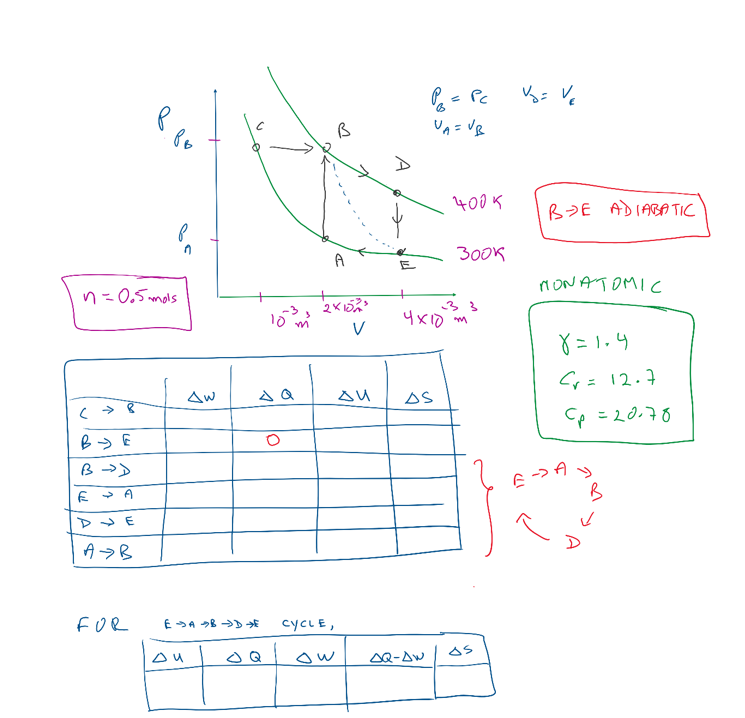 P
P_B
P_A
C
B
D
A
E
400K
300K
10⁻³ m³
2×10⁻³ m³
4×10⁻³ m³
V
P_B = P_C V_D = V_E
V_A = V_B
B→E ADIABATIC
n = 0.5 mols
MONATOMIC
γ = 1.4
C_V = 12.7
C_P = 20.78
ΔW ΔQ ΔU ΔS
C → B
B → E 0
B → D
E → A
D → E
A → B
E → A →
B
D
FOR E→A→B→D→E CYCLE,
ΔU ΔQ ΔW ΔQ-ΔW ΔS